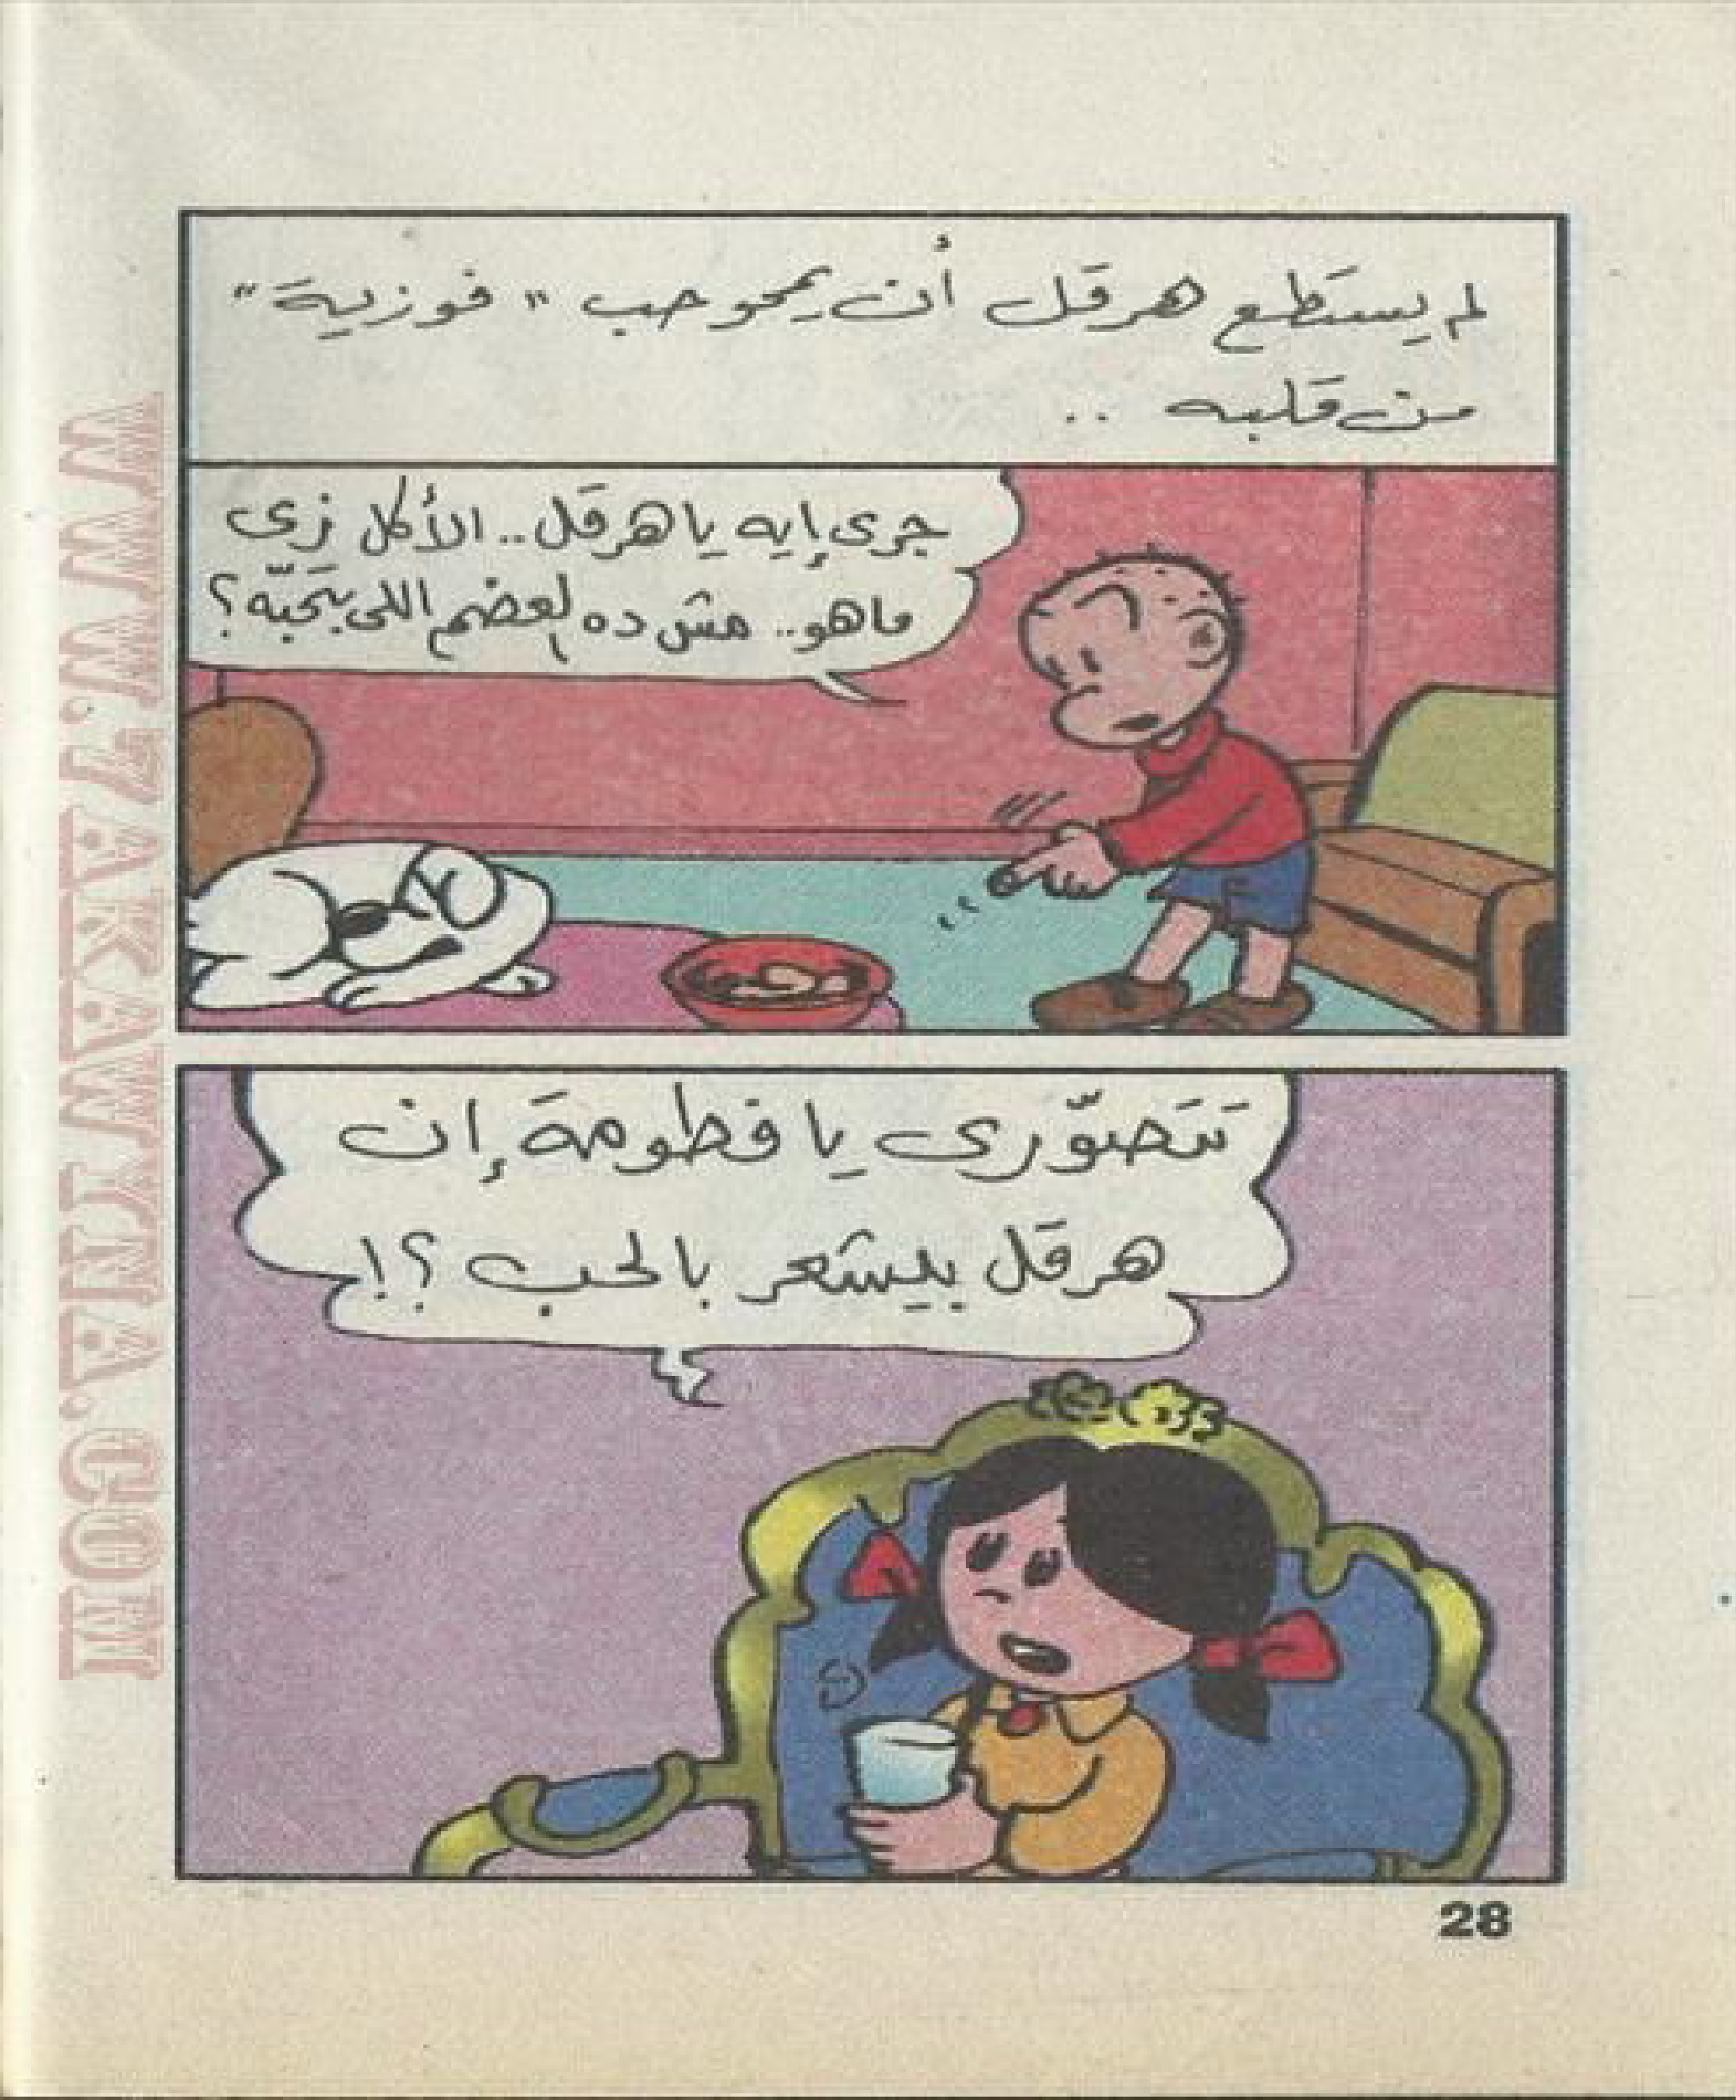 لم يستطع هرقل أن يمحو حب " فوزية "
من قلبه ..
جرى إيه يا هرقل.. الأكل زى
ما هو.. مش ده العضم اللى بتحبّه؟
تتَصوّرى يا فطومة إن
هرقل بيشعر بالحب ؟!
28
WWW.7AKAWYNA.COM